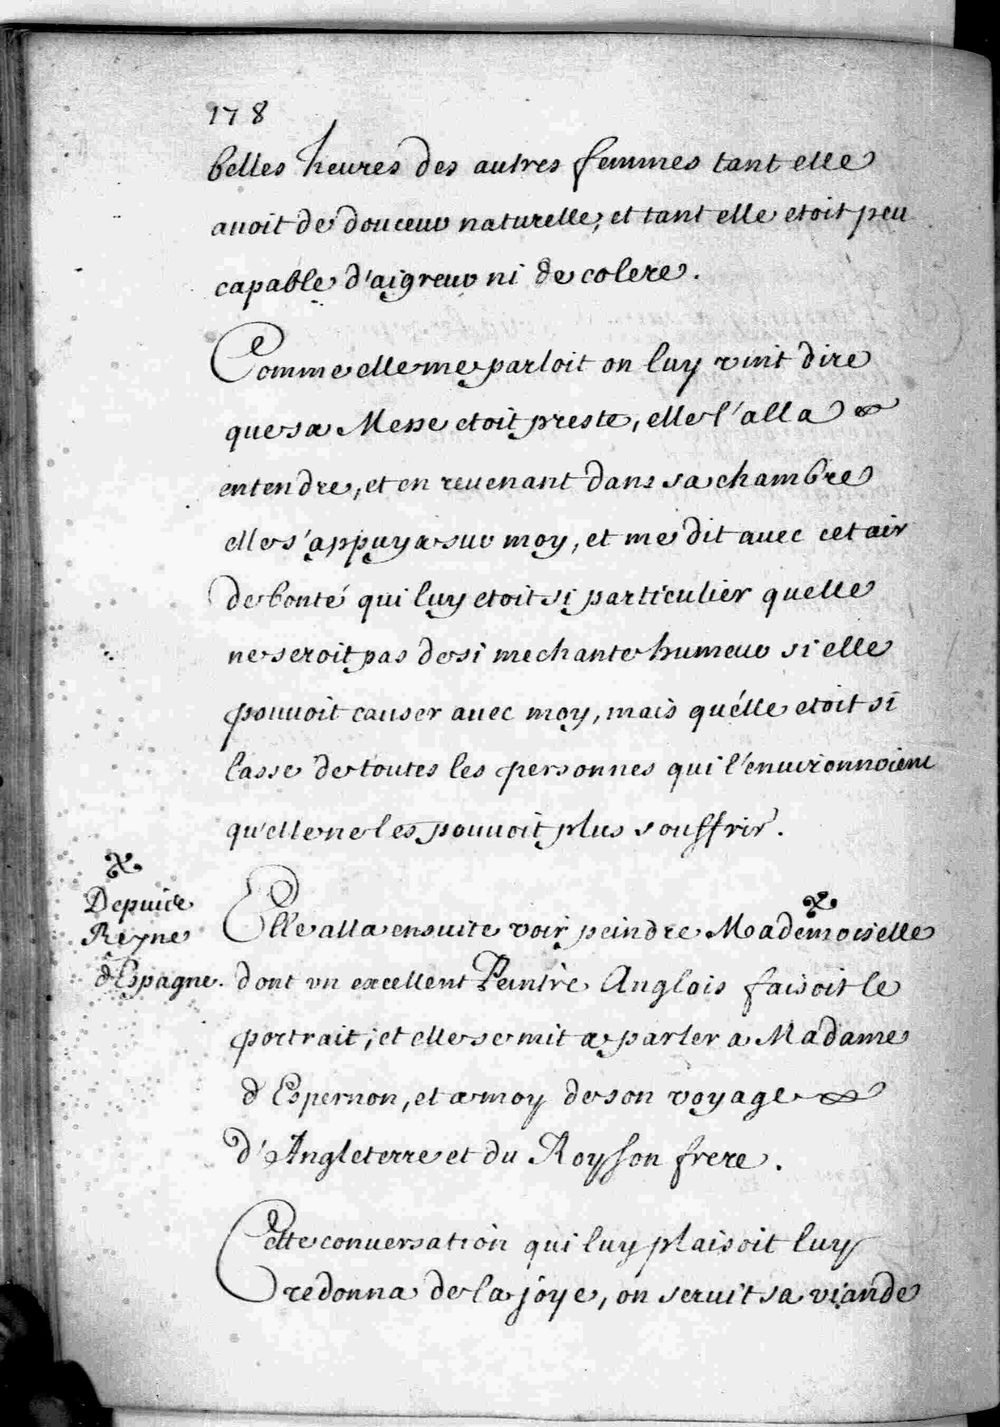 178
belles heures des autres femmes tant elle
auoit de douceur naturelle, et tant elle etoit peu
capable d'aigreur ni de colere.
Comme elle me parloit on luy vint dire
que sa Messe etoit preste, elle l'alla
entendre, et en reuenant dans sa chambre
elle s'appuya sur moy, et me dit auec cet air
de bonté qui luy etoit si particulier quelle
ne seroit pas de si mechante humeur si elle
pouuoit causer auec moy, mais qu'élle etoit si
lasse de toutes les personnes qui l'enuironnoient
qu'elle ne les pouuoit plus souffrir.
Depuis
Reyne
d'Espagne.
Elle alla ensuite voir peindre Mademoiselle
dont vn excellent Peintre Anglois faisoit le
portrait; et elle se mit a parler a Madame
d'Espernon, et a moy de son voyage
d'Angleterre et du Roy son frere.
Cette conuersation qui luy plaisoit luy
redonna de la joye, on seruit sa viande